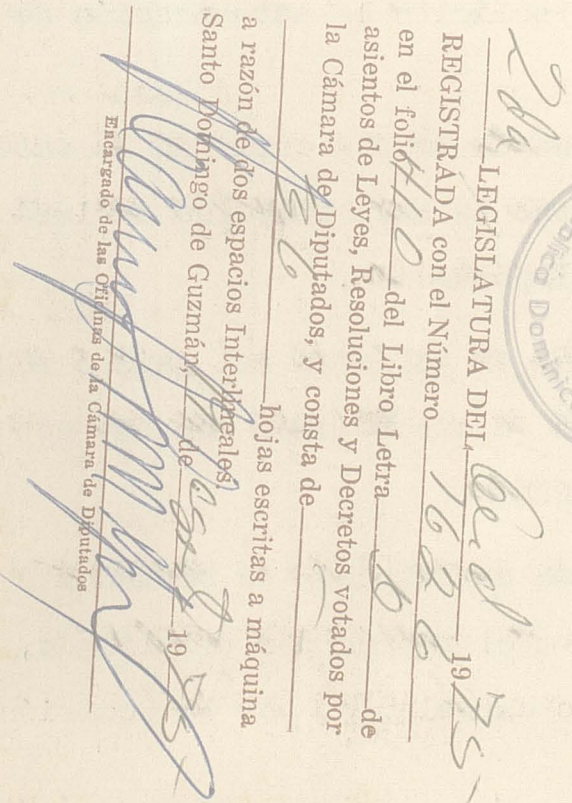 2da LEGISLATURA DEL 1975
REGISTRADA con el Número 1626
en el folio 410 del Libro Letra de
asientos de Leyes, Resoluciones y Decretos votados por
la Cámara de Diputados, y consta de
hojas escritas a máquina
a razón de dos espacios Interlineales
Santo Domingo de Guzmán, de 1975
Encargado de las Oficinas de la Cámara de Diputados